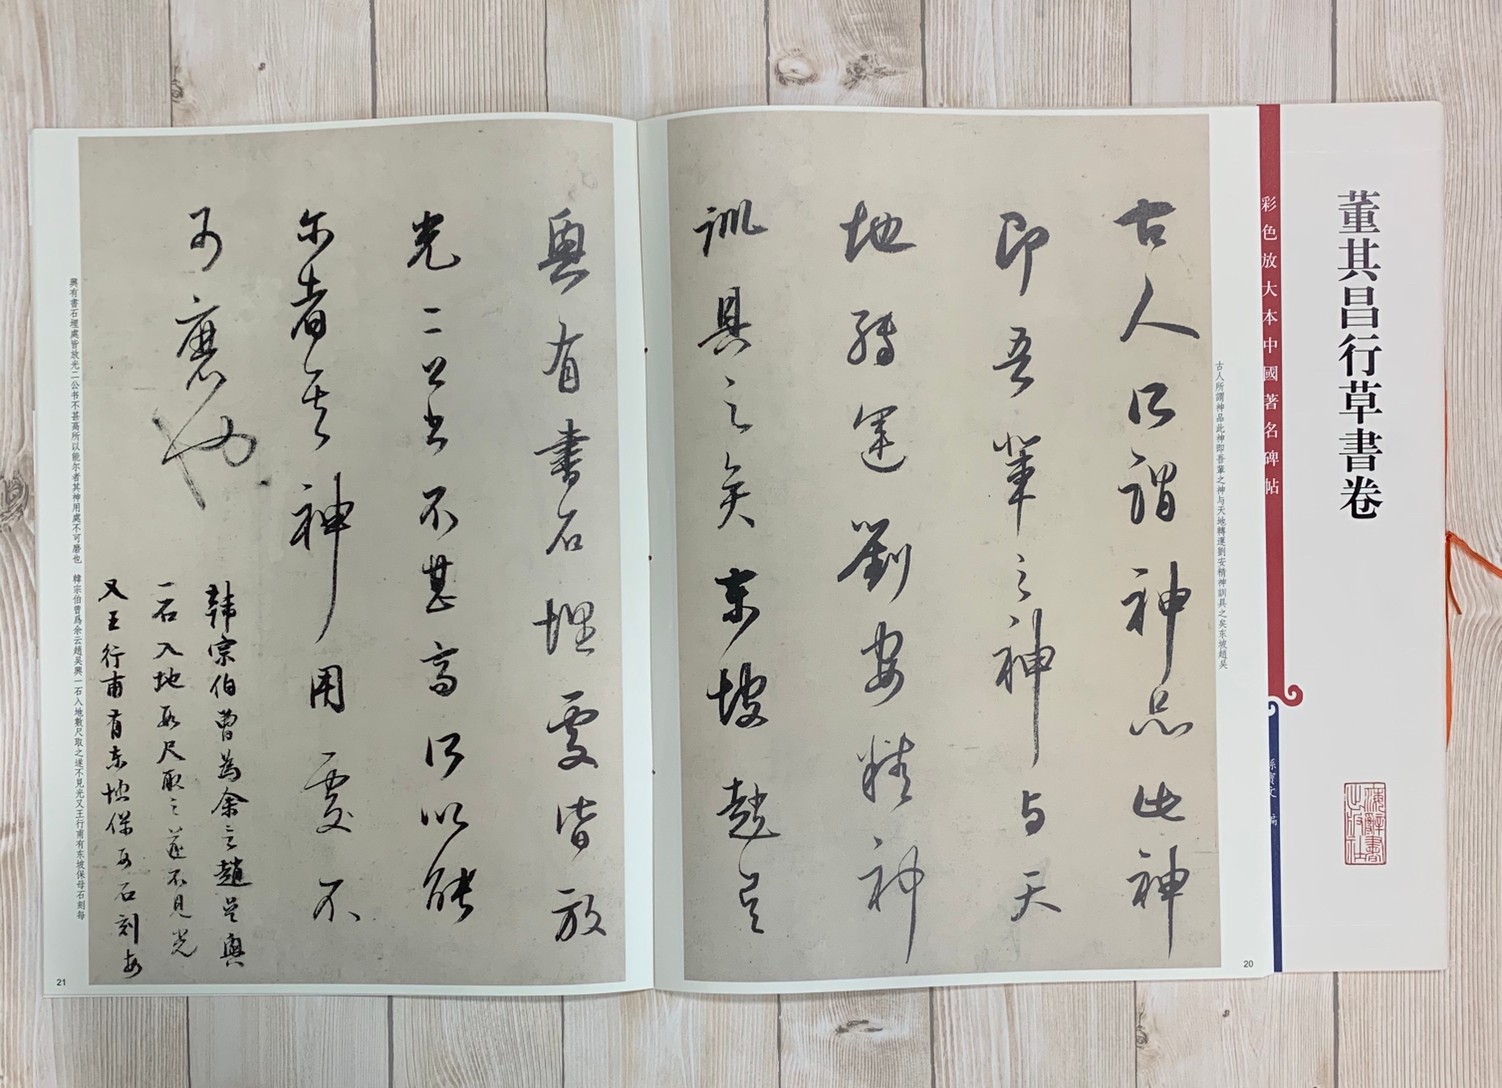 董其昌行草書卷
彩色放大本中國著名碑帖
孫寶文 編
海辭書出版社
古人所謂神品此神即吾輩之神与天地轉運劉安精神訓具之矣东坡趙吴
古人所謂神品此神
即吾輩之神与天
地轉運劉安精神
訓具之矣东坡趙吴
20
興有書石埋處皆放
光二公书不甚高所以能
尔者其神用處不
可磨也
韓宗伯曾為余云趙吴興
一石入地數尺取之遂不見光
又王行甫有东坡保母石刻每
興有書石埋處皆放光二公书不甚高所以能尔者其神用處不可磨也 韓宗伯曾爲余云趙吴興一石入地數尺取之遂不見光又王行甫有东坡保母石刻每
21